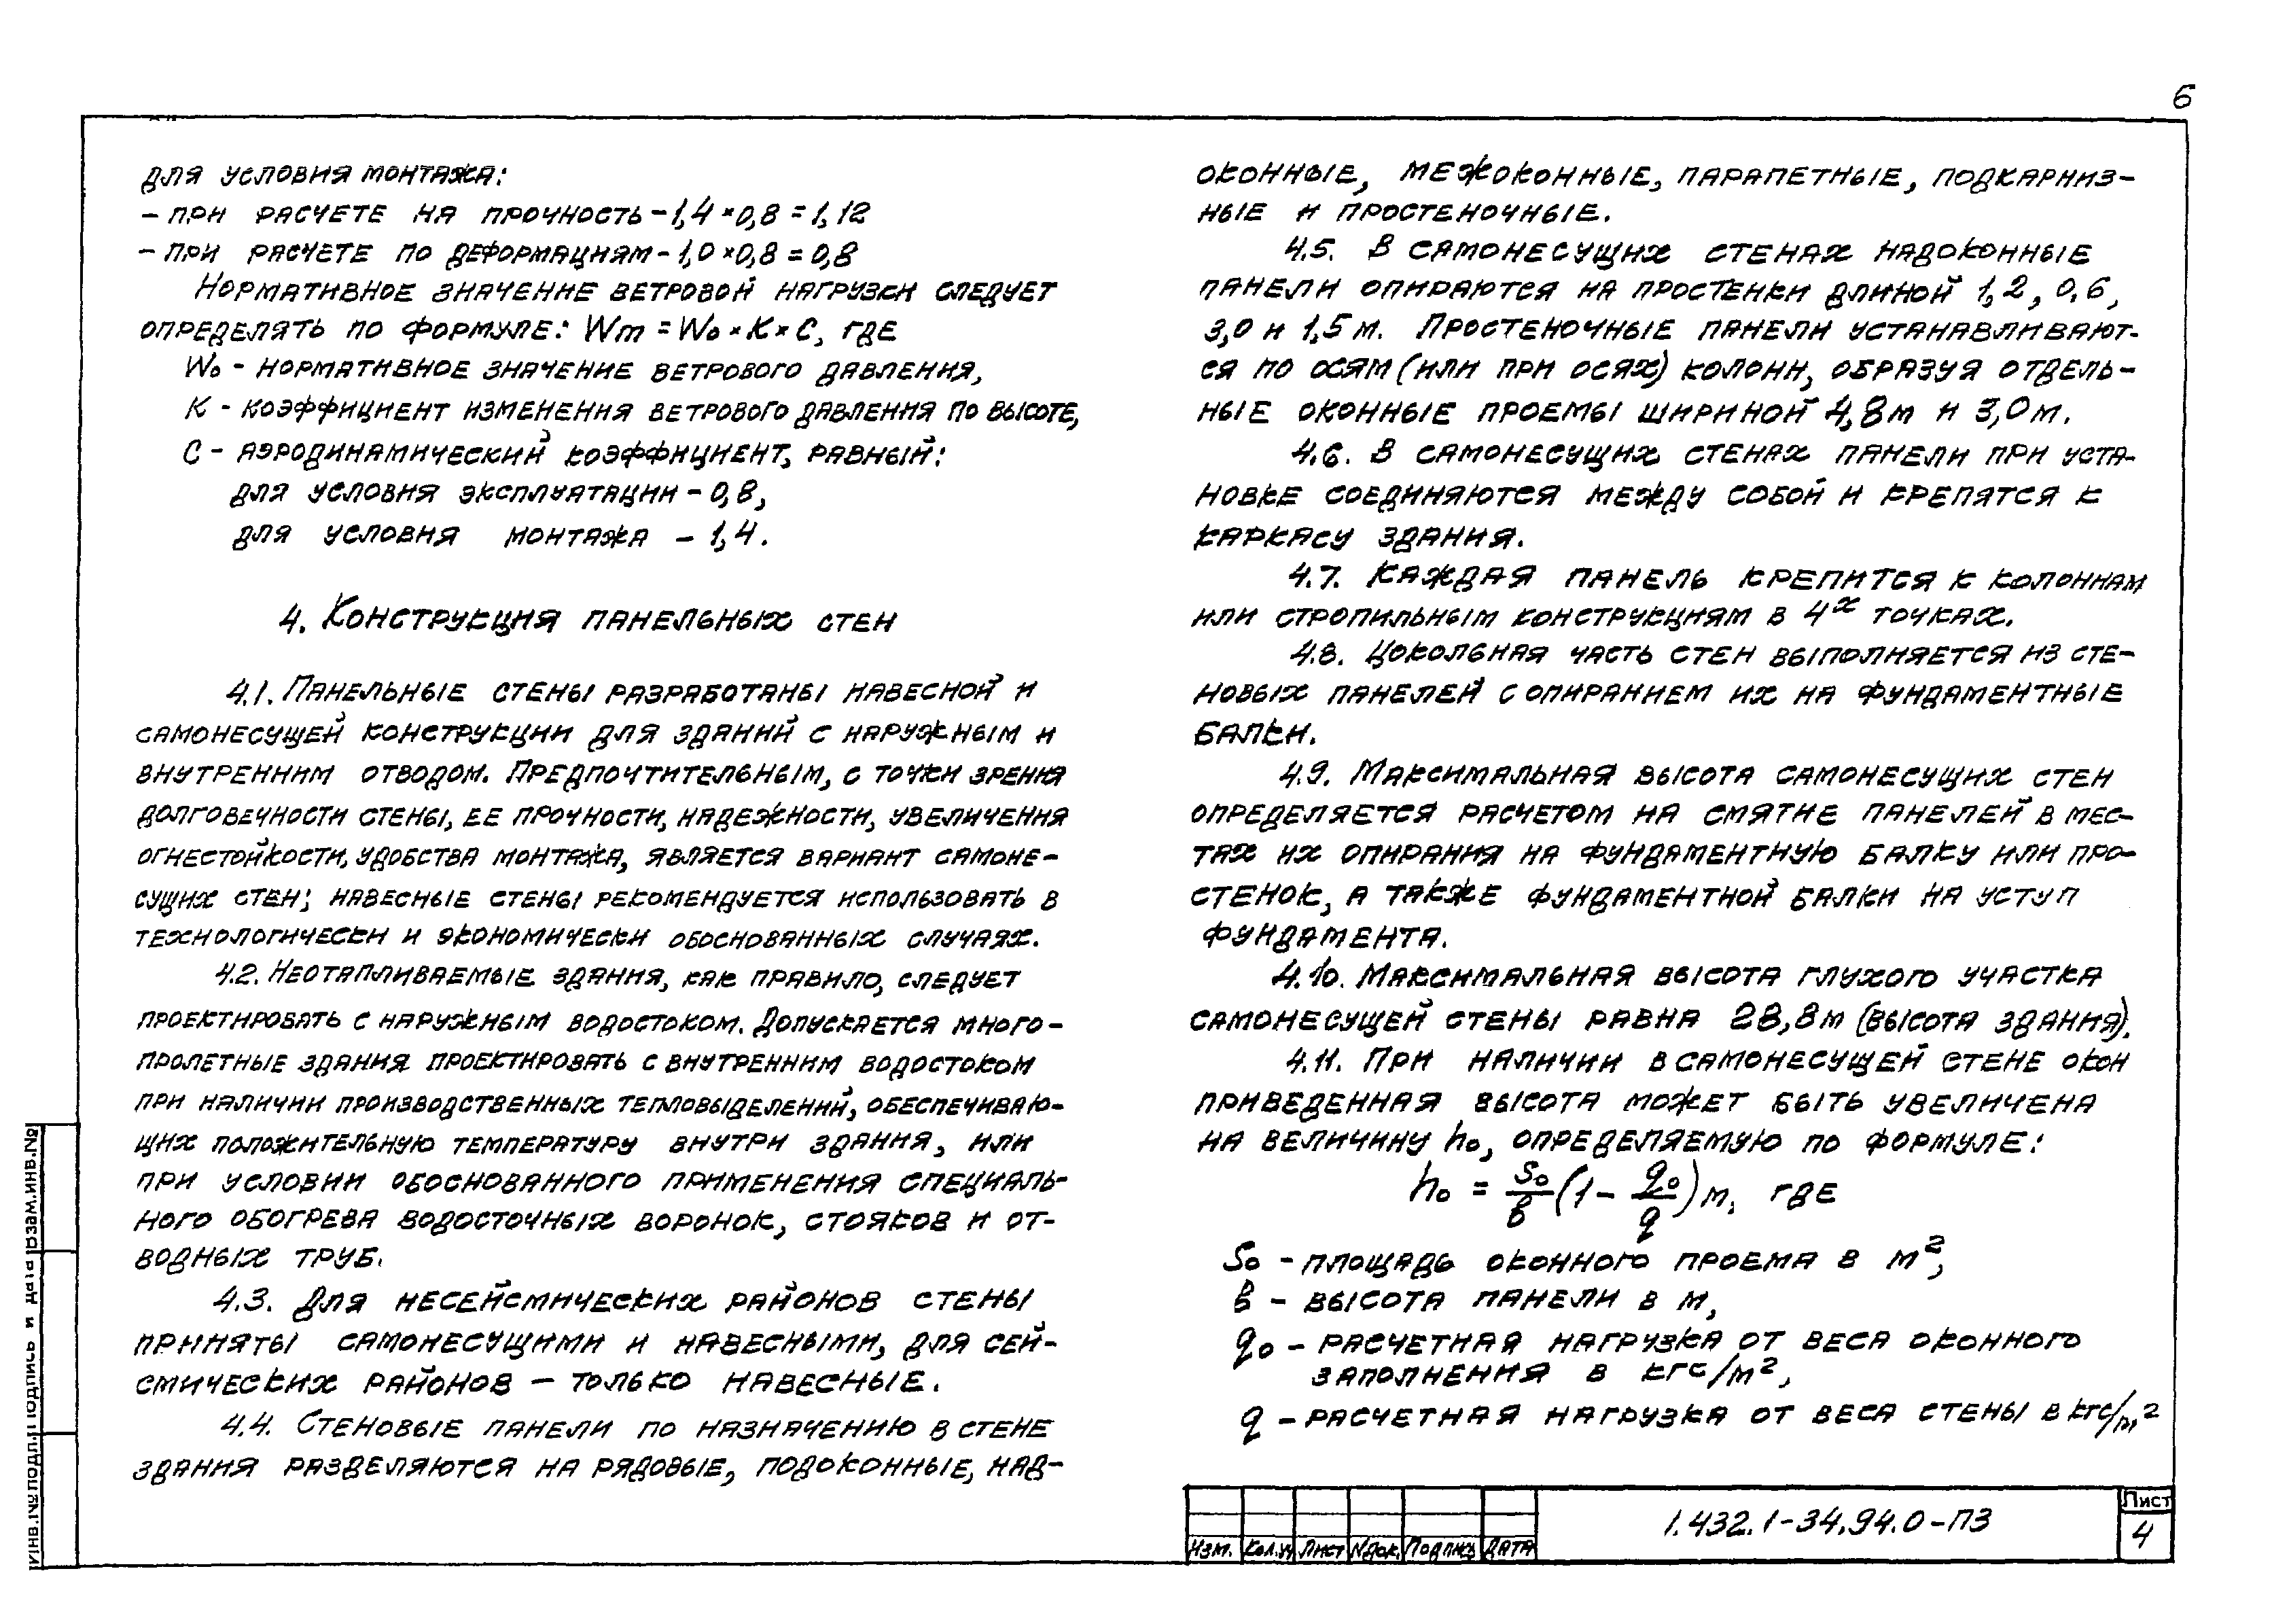 6
для условия монтажа:
- при расчете на прочность - 1,4 × 0,8 = 1,12
- при расчете по деформациям - 1,0 × 0,8 = 0,8
Нормативное значение ветровой нагрузки следует
определять по формуле: Wm = Wo × K × C, где
Wo - нормативное значение ветрового давления,
K - коэффициент изменения ветрового давления по высоте,
C - аэродинамический коэффициент, равный:
для условия эксплуатации - 0,8,
для условия монтажа - 1,4.
4. Конструкция панельных стен
4.1. Панельные стены разработаны навесной и
самонесущей конструкции для зданий с наружным и
внутренним отводом. Предпочтительным, с точки зрения
долговечности стены, ее прочности, надежности, увеличения
огнестойкости, удобства монтажа, является вариант самоне-
сущих стен; навесные стены рекомендуется использовать в
технологически и экономически обоснованных случаях.
4.2. Неотапливаемые здания, как правило, следует
проектировать с наружным водостоком. Допускается много-
пролетные здания проектировать с внутренним водостоком
при наличии производственных тепловыделений, обеспечиваю-
щих положительную температуру внутри здания, или
при условии обоснованного применения специаль-
ного обогрева водосточных воронок, стояков и от-
водных труб.
4.3. Для несейсмических районов стены
приняты самонесущими и навесными, для сей-
смических районов - только навесные.
4.4. Стеновые панели по назначению в стене
здания разделяются на рядовые, подоконные, над-
оконные, межоконные, парапетные, подкарниз-
ные и простеночные.
4.5. В самонесущих стенах надоконные
панели опираются на простенки длиной 1,2, 0,6,
3,0 и 1,5 м. Простеночные панели устанавливают-
ся по осям (или при осях) колонн, образуя отдель-
ные оконные проемы шириной 4,8м и 3,0м.
4.6. В самонесущих стенах панели при уста-
новке соединяются между собой и крепятся к
каркасу здания.
4.7. Каждая панель крепится к колоннам
или стропильным конструкциям в 4х точках.
4.8. Цокольная часть стен выполняется из сте-
новых панелей с опиранием их на фундаментные
балки.
4.9. Максимальная высота самонесущих стен
определяется расчетом на смятие панелей в мес-
тах их опирания на фундаментную балку или про-
стенок, а также фундаментной балки на уступ
фундамента.
4.10. Максимальная высота глухого участка
самонесущей стены равна 28,8м (высота здания).
4.11. При наличии в самонесущей стене окон
приведенная высота может быть увеличена
на величину ho, определяемую по формуле:
ho = So/в (1 - qo/q) м, где
So - площадь оконного проема в м²,
в - высота панели в м,
qo - расчетная нагрузка от веса оконного
заполнения в кгс/м²,
q - расчетная нагрузка от веса стены в кгс/м²
Изм. Кол.уч Лист Nдок. Подпись Дата
1.432.1-34.94.0-ПЗ
Лист
4
Инв.№подл. Подпись и дата Взам.инв.№